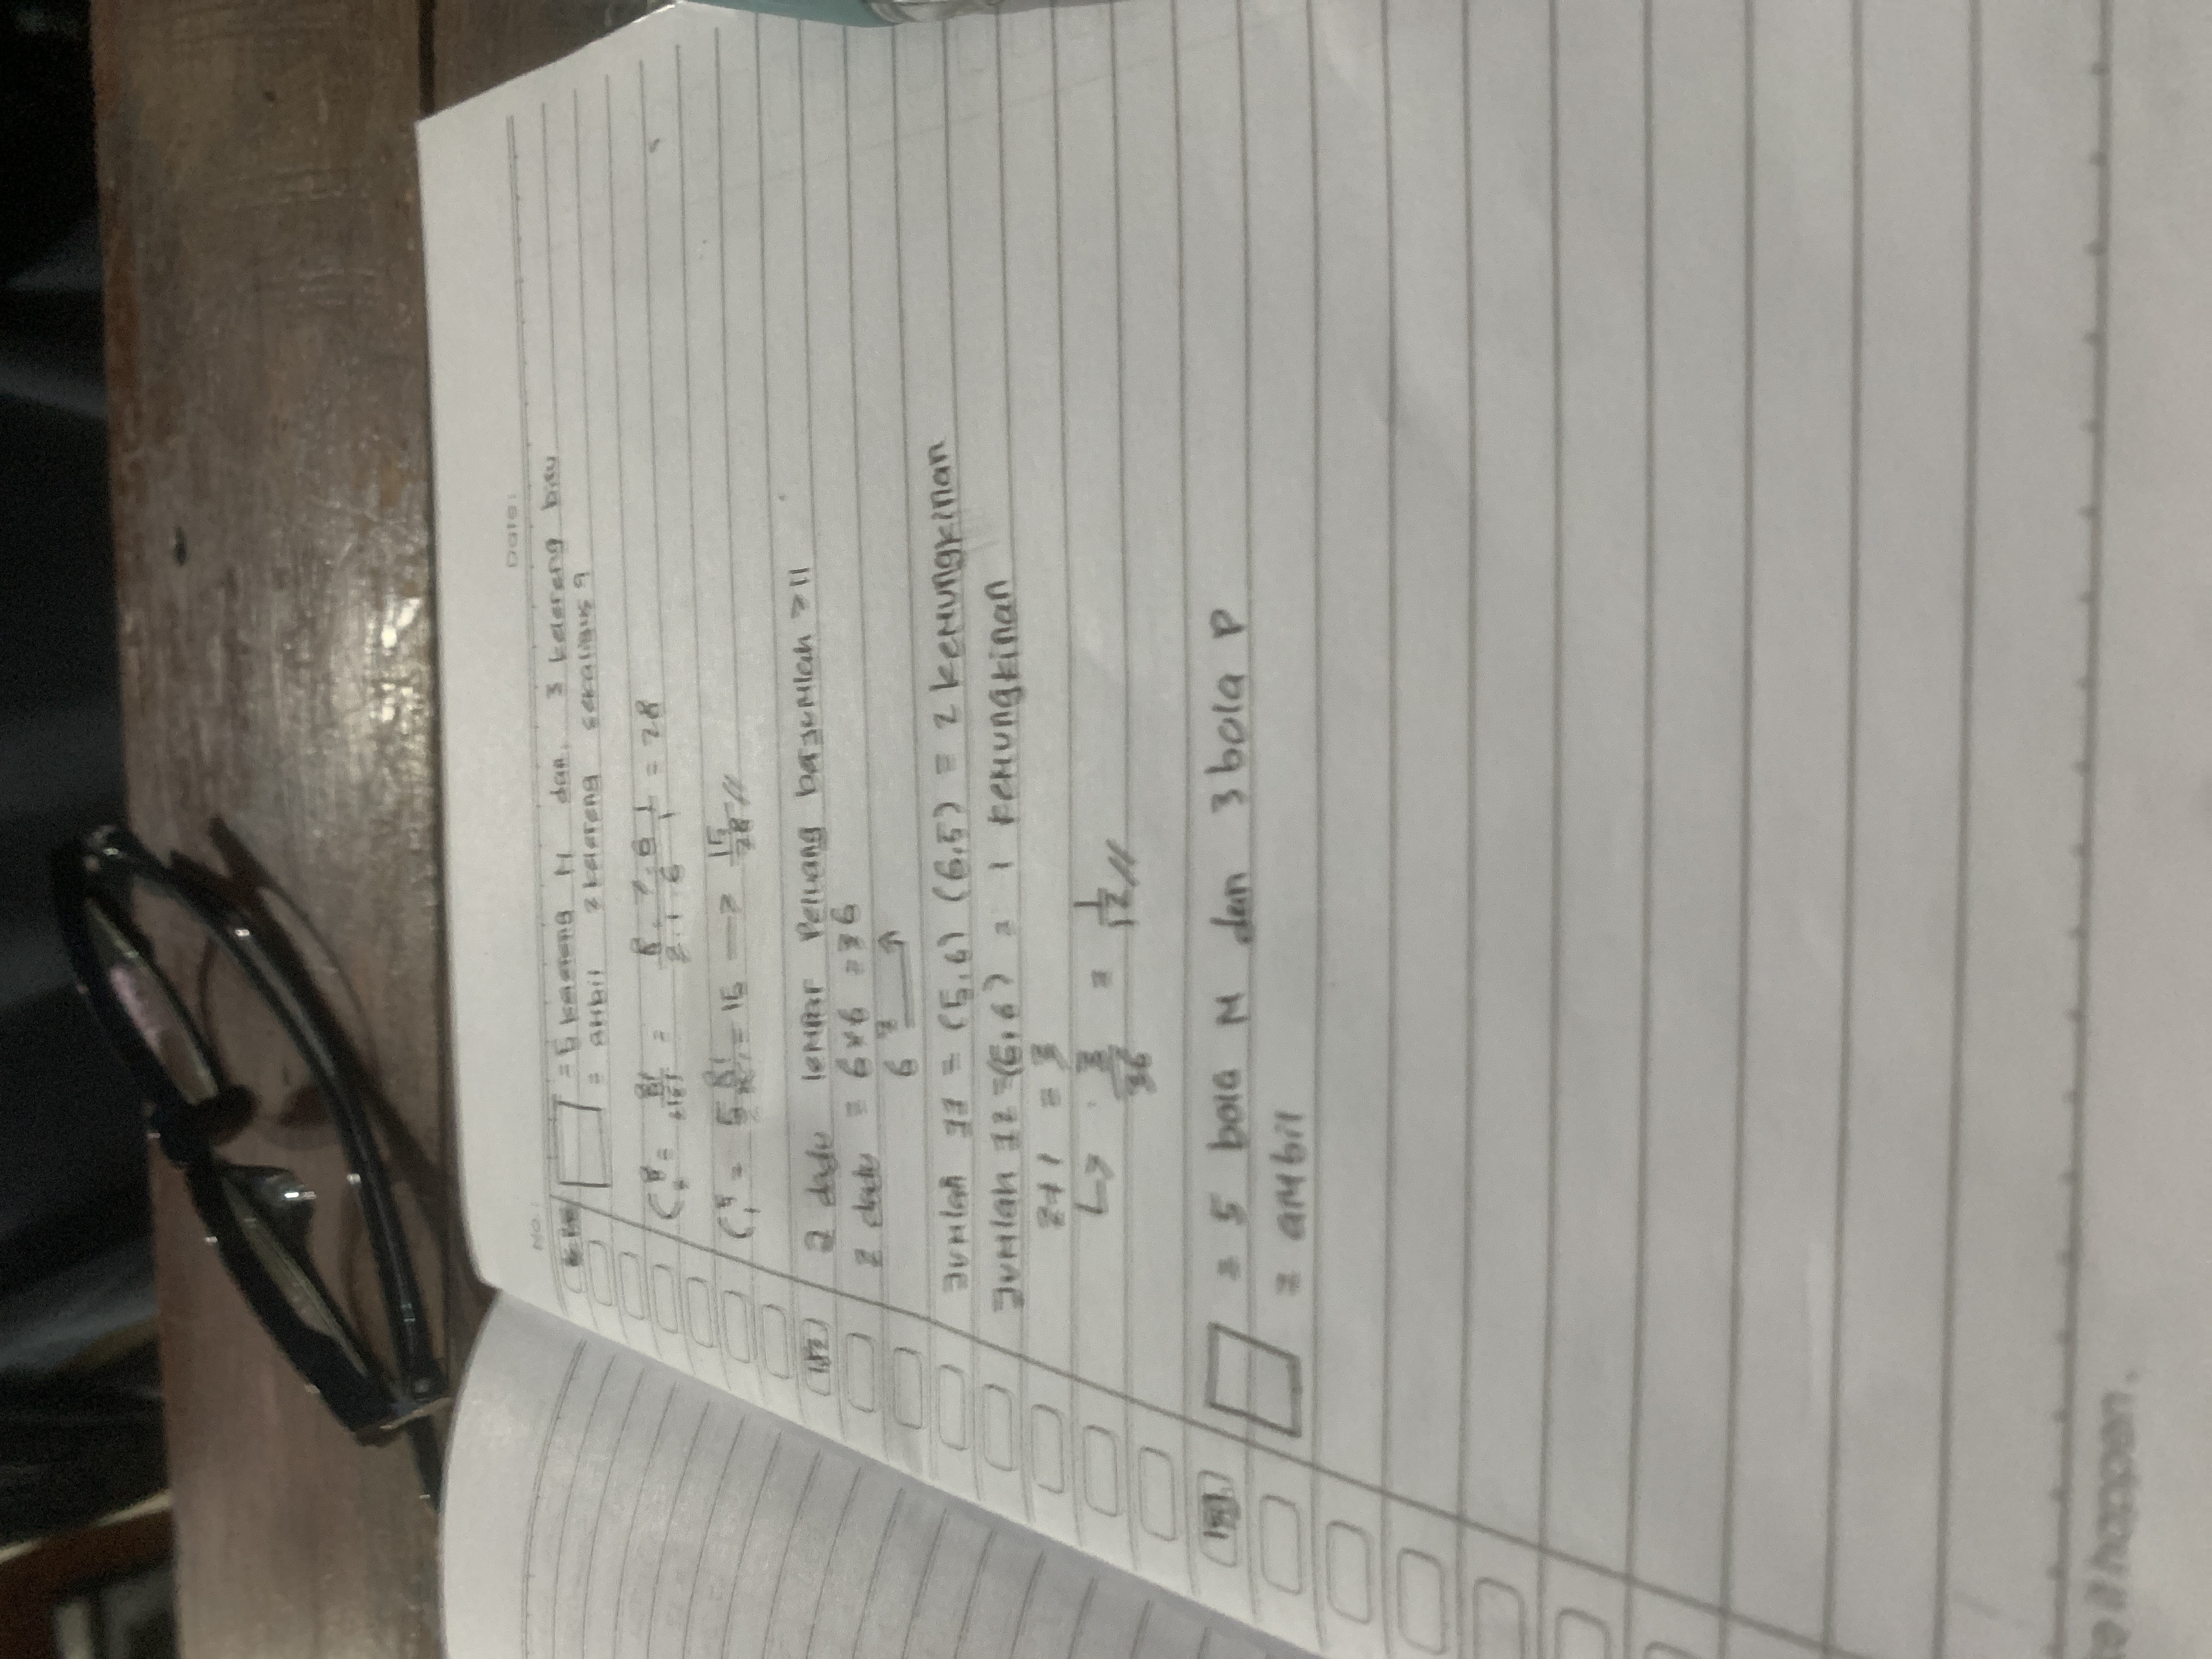 No.:
Date:
= 5 kelereng M dan 3 kelereng biru
= ambil 2 kelereng sekaligus?
C₂⁸ = 8! = 8.7.6 1 / 2.1.6 1 = 28
C₁⁵ = = 15 → 15/28 //
2 dadu lempar Peluang berjumlah > 11
2 dadu = 6×6 = 36
6²
Jumlah 11 = (5,6) (6,5) = 2 kemungkinan
Jumlah 12 = (6,6) = 1 kemungkinan
2+1 = 3
↳ 3/36 = 1/12 //
= 5 bola M dan 3 bola P
= ambil
it happen.